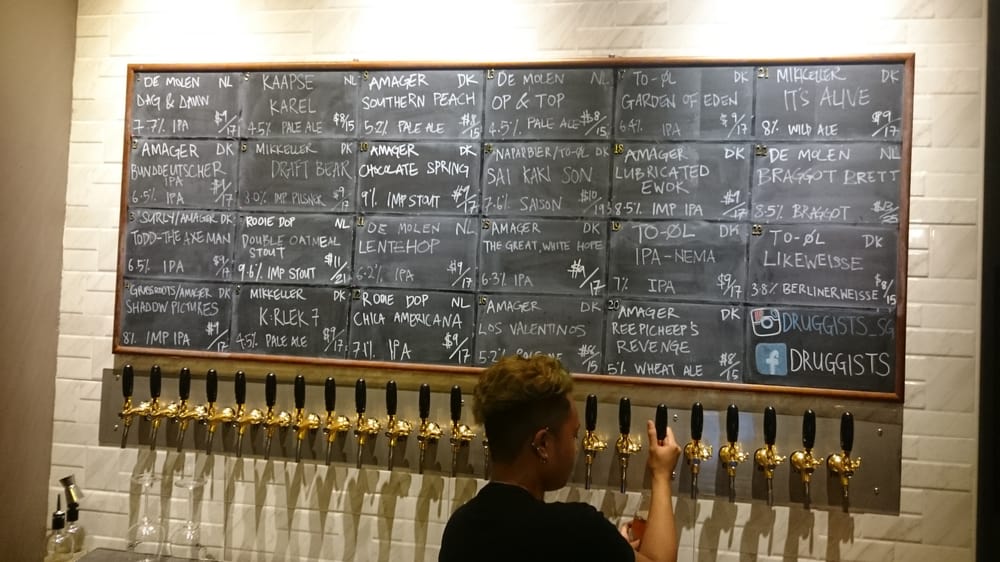 DE MOLEN NL
DAG & DAWN
7.7% IPA $9/17
2
AMAGER DK
BUNDDEUTSCHER
IPA
6.5% IPA
3
SURLY/AMAGER DK
TODD-THE AXE MAN
6.5% IPA $9/17
GRASSROOTS/AMAGER DK
SHADOW PICTURES
8% IMP IPA $9/17
KAAPSE NL
KAREL
4.5% PALE ALE $8/15
MIKKELLER DK
DRIFT BEAR
IMP PILSNER $9/17
ROOIE DOP NL
DOUBLE OATMEAL
STOUT
9.6% IMP STOUT $11/21
MIKKELLER DK
K:RLEK 7
4.5% PALE ALE
9
AMAGER DK
SOUTHERN PEACH
5.2% PALE ALE $8/15
10
AMAGER DK
CHOCOLATE SPRING
9% IMP STOUT $9/17
DE MOLEN NL
LENTEHOP
6.2% IPA $9/17
12
ROOIE DOP NL
CHICA AMERICANA
7.1% IPA $9/17
13
DE MOLEN NL
OP & TOP
4.5% PALE ALE $8/15
NAPARBIER/TO-ØL DK
SAI KAN SON
7.6% SAISON $10/19
AMAGER DK
THE GREAT WHITE HOPE
6.3% IPA $9/17
AMAGER DK
LOS VALENTINOS
5.2% $8/15
TO-ØL DK
GARDEN OF EDEN
6.4% IPA $9/17
18
AMAGER DK
LUBRICATED
EWOK
8.5% IMP IPA $9/17
19
TO-ØL DK
IPA-NEMA
7% IPA $9/17
20
AMAGER DK
REEPICHEEP'S
REVENGE
5% WHEAT ALE $8/15
21
MIKKELLER DK
IT'S ALIVE
8% WILD ALE $9/17
22
DE MOLEN NL
BRAGGOT BRETT
8.5% BRAGGOT $13/25
23
TO-ØL DK
LIKEWEISSE
3.8% BERLINERWEISSE $8/15
DRUGGISTS_SG
f DRUGGISTS